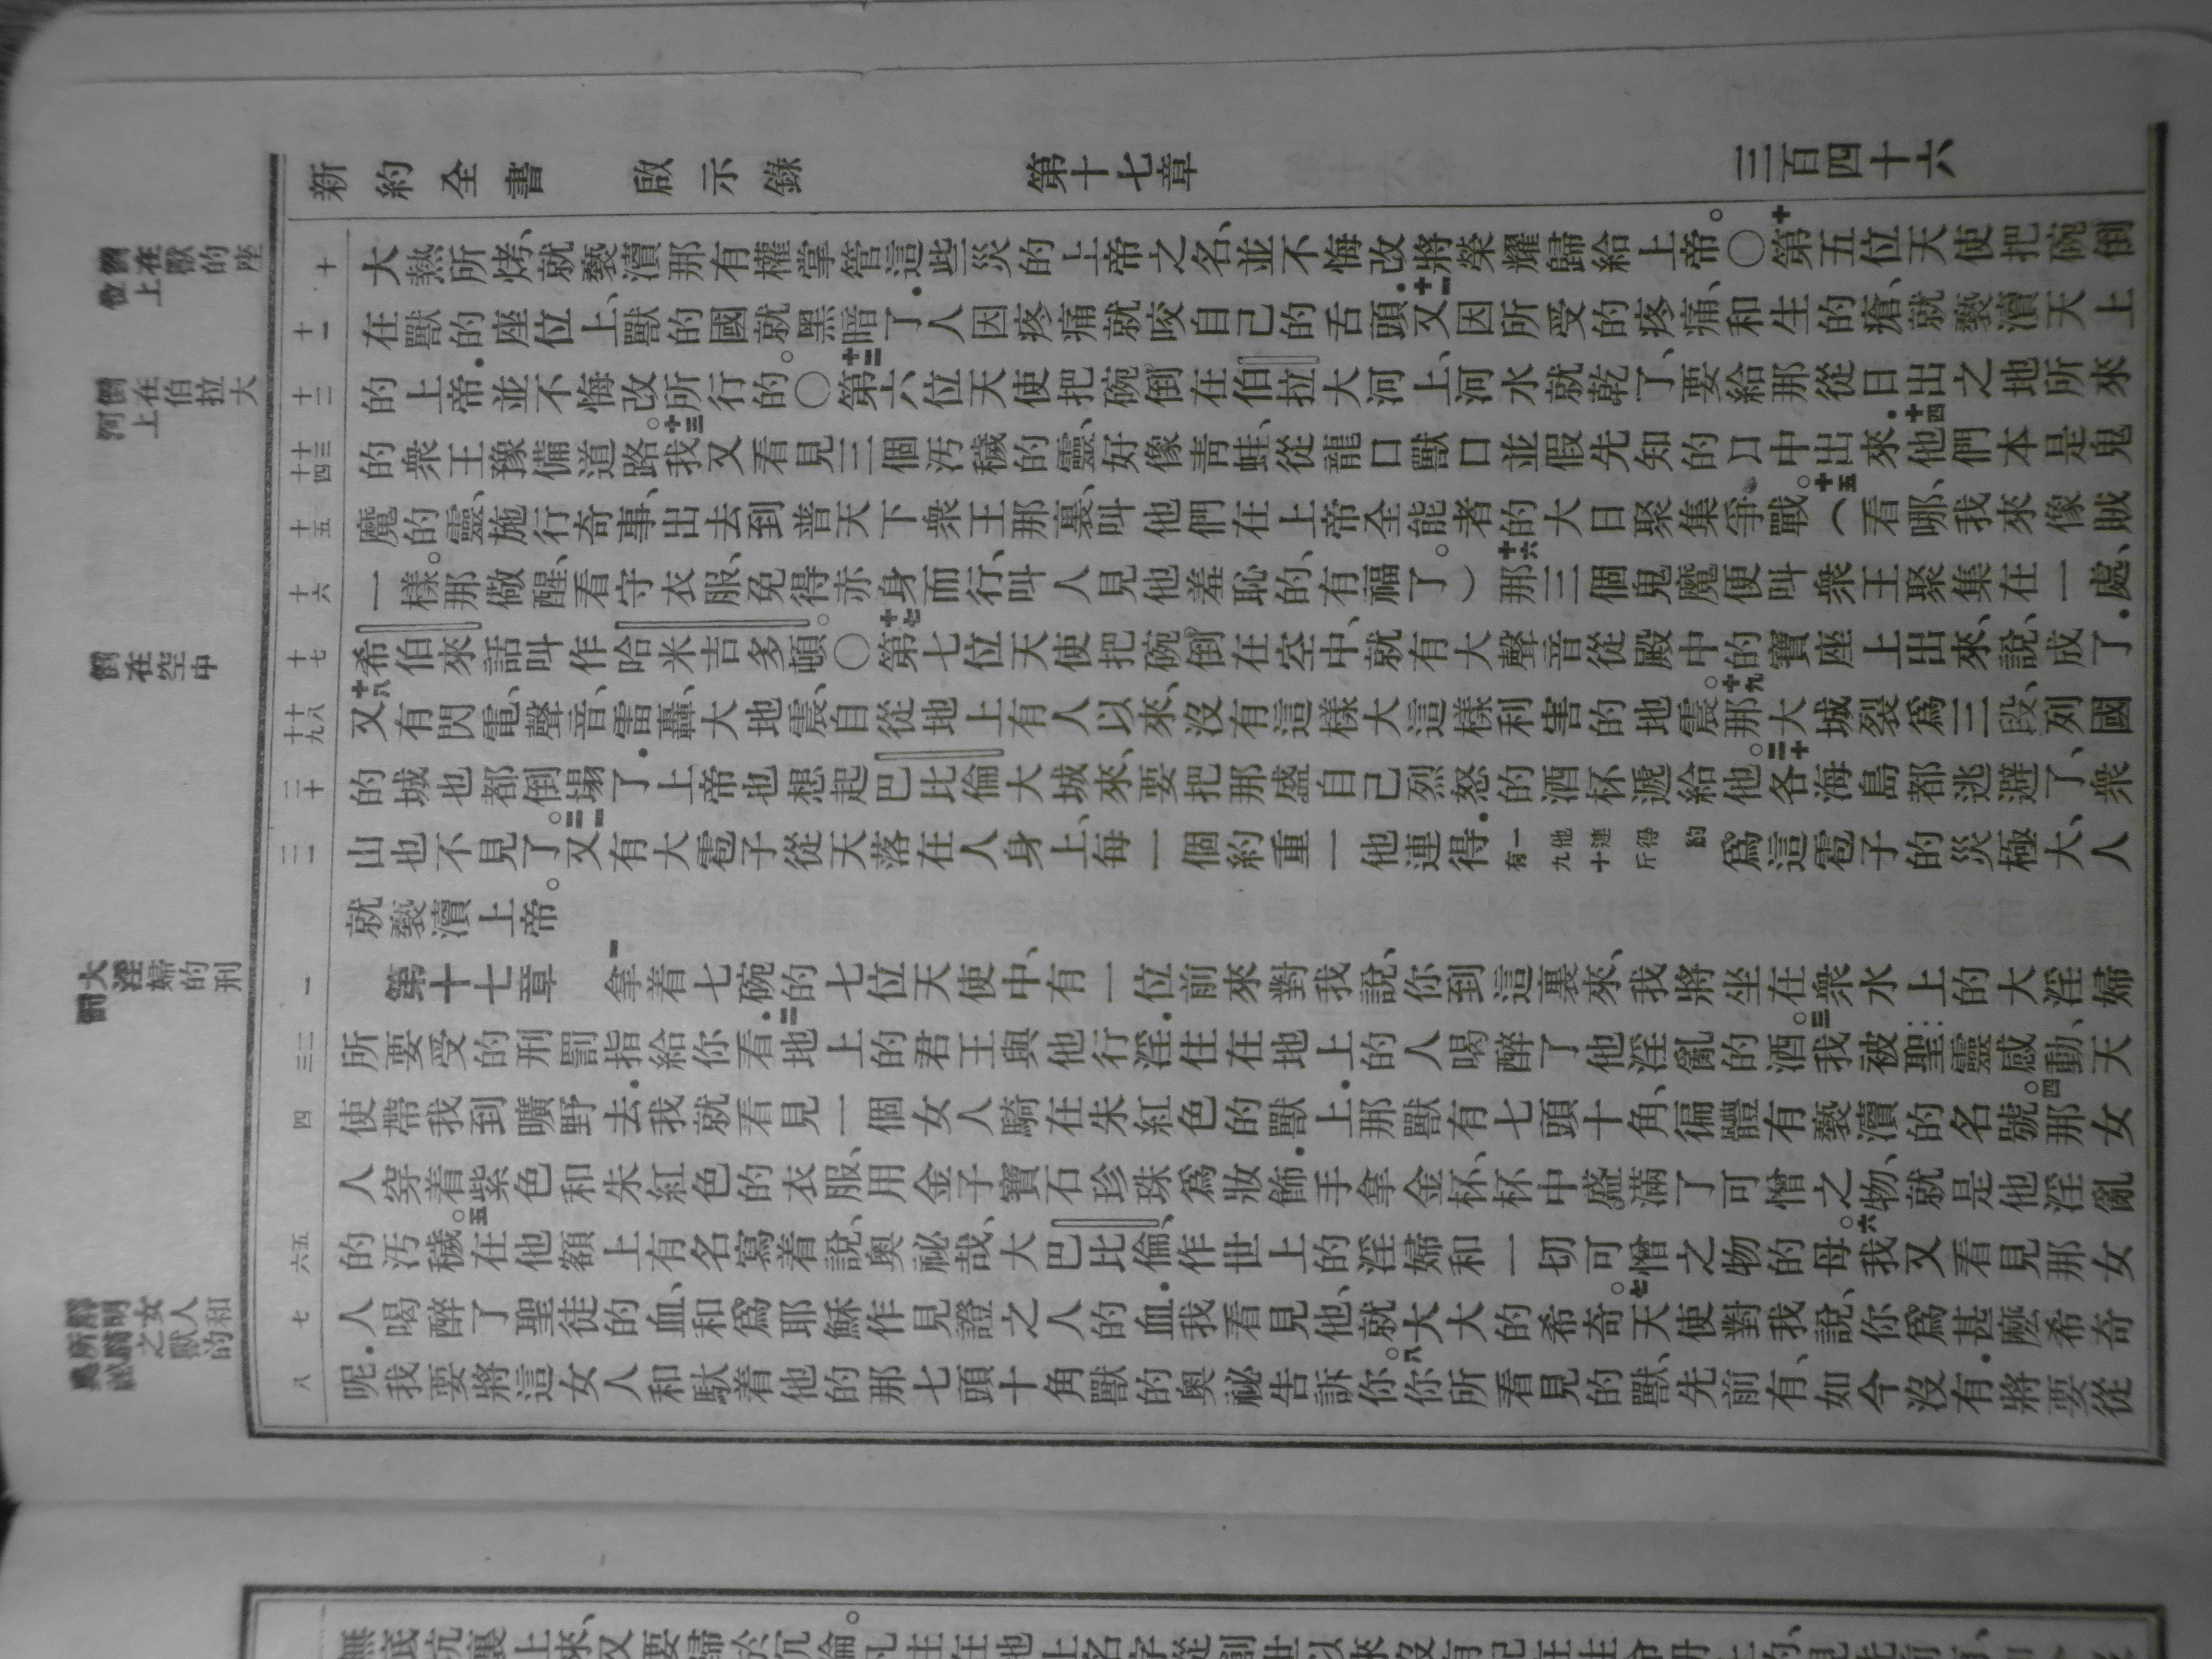 新約全書 啟示錄 第十七章 三百四十六
大熱所烤、就褻瀆那有權掌管這些災的上帝之名、並不悔改將榮耀歸給上帝。○十第五位天使把碗倒
在獸的座位上、獸的國就黑暗了．人因疼痛就咬自己的舌頭．十一又因所受的疼痛、和生的瘡、就褻瀆天上
的上帝．並不悔改所行的。○十二第六位天使把碗倒在伯拉大河上、河水就乾了、要給那從日出之地所來
的衆王豫備道路。十三我又看見三個汚穢的靈、好像靑蛙、從龍口獸口並假先知的口中出來．十四他們本是鬼
魔的靈、施行奇事、出去到普天下衆王那裏、叫他們在上帝全能者的大日聚集爭戰。十五（看哪、我來像賊
一樣。那儆醒、看守衣服、免得赤身而行、叫人見他羞恥的、有福了。）十六那三個鬼魔便叫衆王聚集在一處、
希伯來話叫作哈米吉多頓。○十七第七位天使把碗倒在空中、就有大聲音從殿中的寶座上出來、說、成了．
十八又有閃電、聲音、雷轟、大地震、自從地上有人以來、沒有這樣大這樣利害的地震。十九那大城裂爲三段、列國
的城也都倒塌了．上帝也想起巴比倫大城來、要把那盛自己烈怒的酒杯遞給他。二十各海島都逃避了、衆
山也不見了。二一又有大雹子從天落在人身上、每一個約重一他連得．一他連得約有九十斤爲這雹子的災極大、人
就褻瀆上帝。
第十七章 一拿着七碗的七位天使中、有一位前來對我說、你到這裏來、我將坐在衆水上的大淫婦
所要受的刑罰指給你看．二地上的君王與他行淫．住在地上的人喝醉了他淫亂的酒。三我被聖靈感動、天
使帶我到曠野去．我就看見一個女人騎在朱紅色的獸上．那獸有七頭十角、徧體有褻瀆的名號。四那女
人穿着紫色和朱紅色的衣服、用金子寶石珍珠爲妝飾．手拿金杯、杯中盛滿了可憎之物、就是他淫亂
的汚穢。五在他額上有名寫着說、奧祕哉、大巴比倫、作世上的淫婦和一切可憎之物的母。六我又看見那女
人喝醉了聖徒的血、和爲耶穌作見證之人的血．我看見他、就大大的希奇。七天使對我說、你爲甚麽希奇
呢．我要將這女人和馱着他的那七頭十角獸的奧祕告訴你。八你所看見的獸、先前有、如今沒有．將要從
倒在獸的座位上
倒在伯拉大河上
倒在空中
大淫婦的刑罰